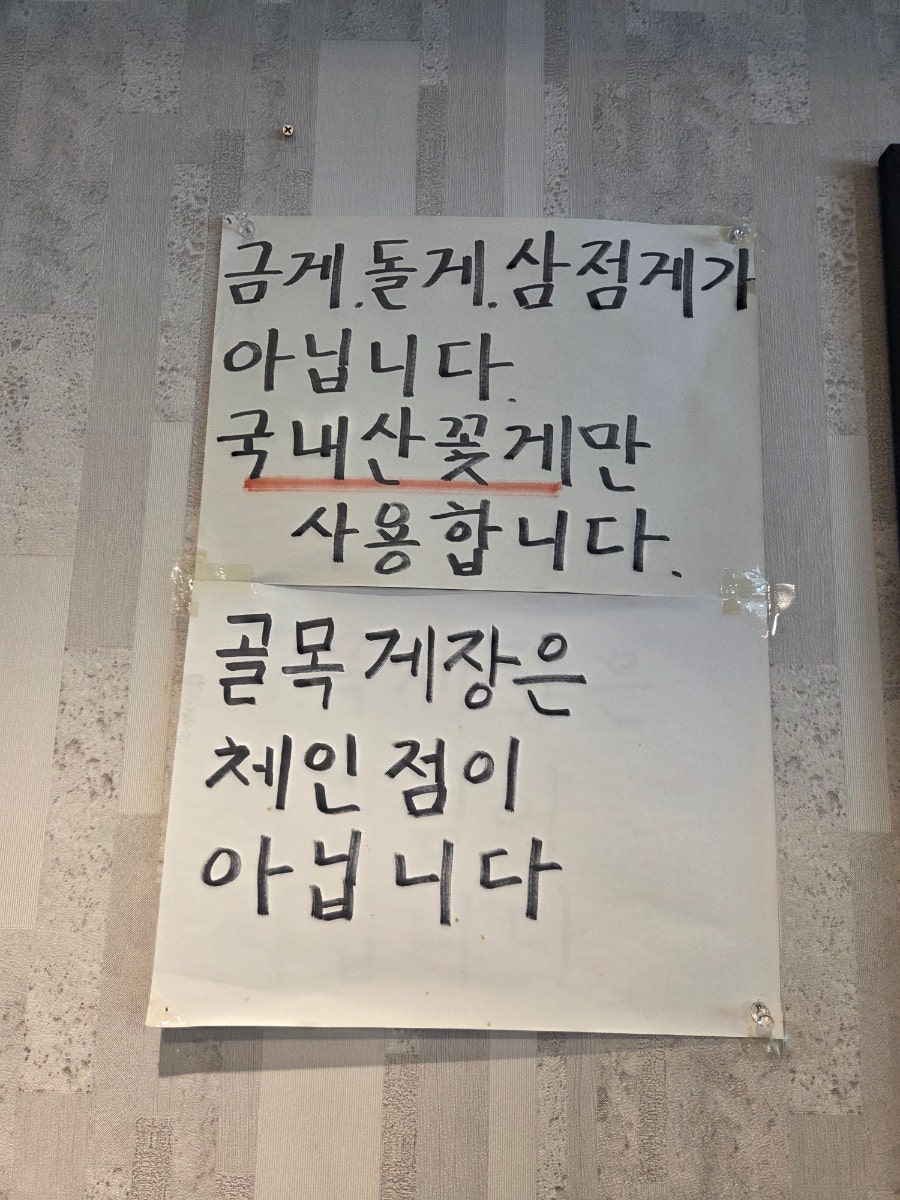 금게.돌게.삼점게가
아닙니다.
국내산꽃게만
사용합니다.
골목게장은
체인점이
아닙니다